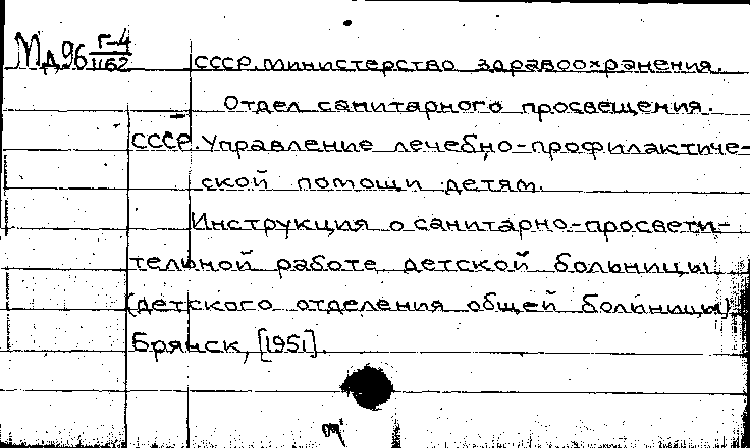 Мд96 Г-4/1162
СССР. Министерство здравоохранения.
Отдел санитарного просвещения.
СССР. Управление лечебно-профилактиче-
ской помощи детям.
Инструкция о санитарно-просвети-
тельной работе детской больницы
(детского отделения общей больницы)
Брянск, [1951].